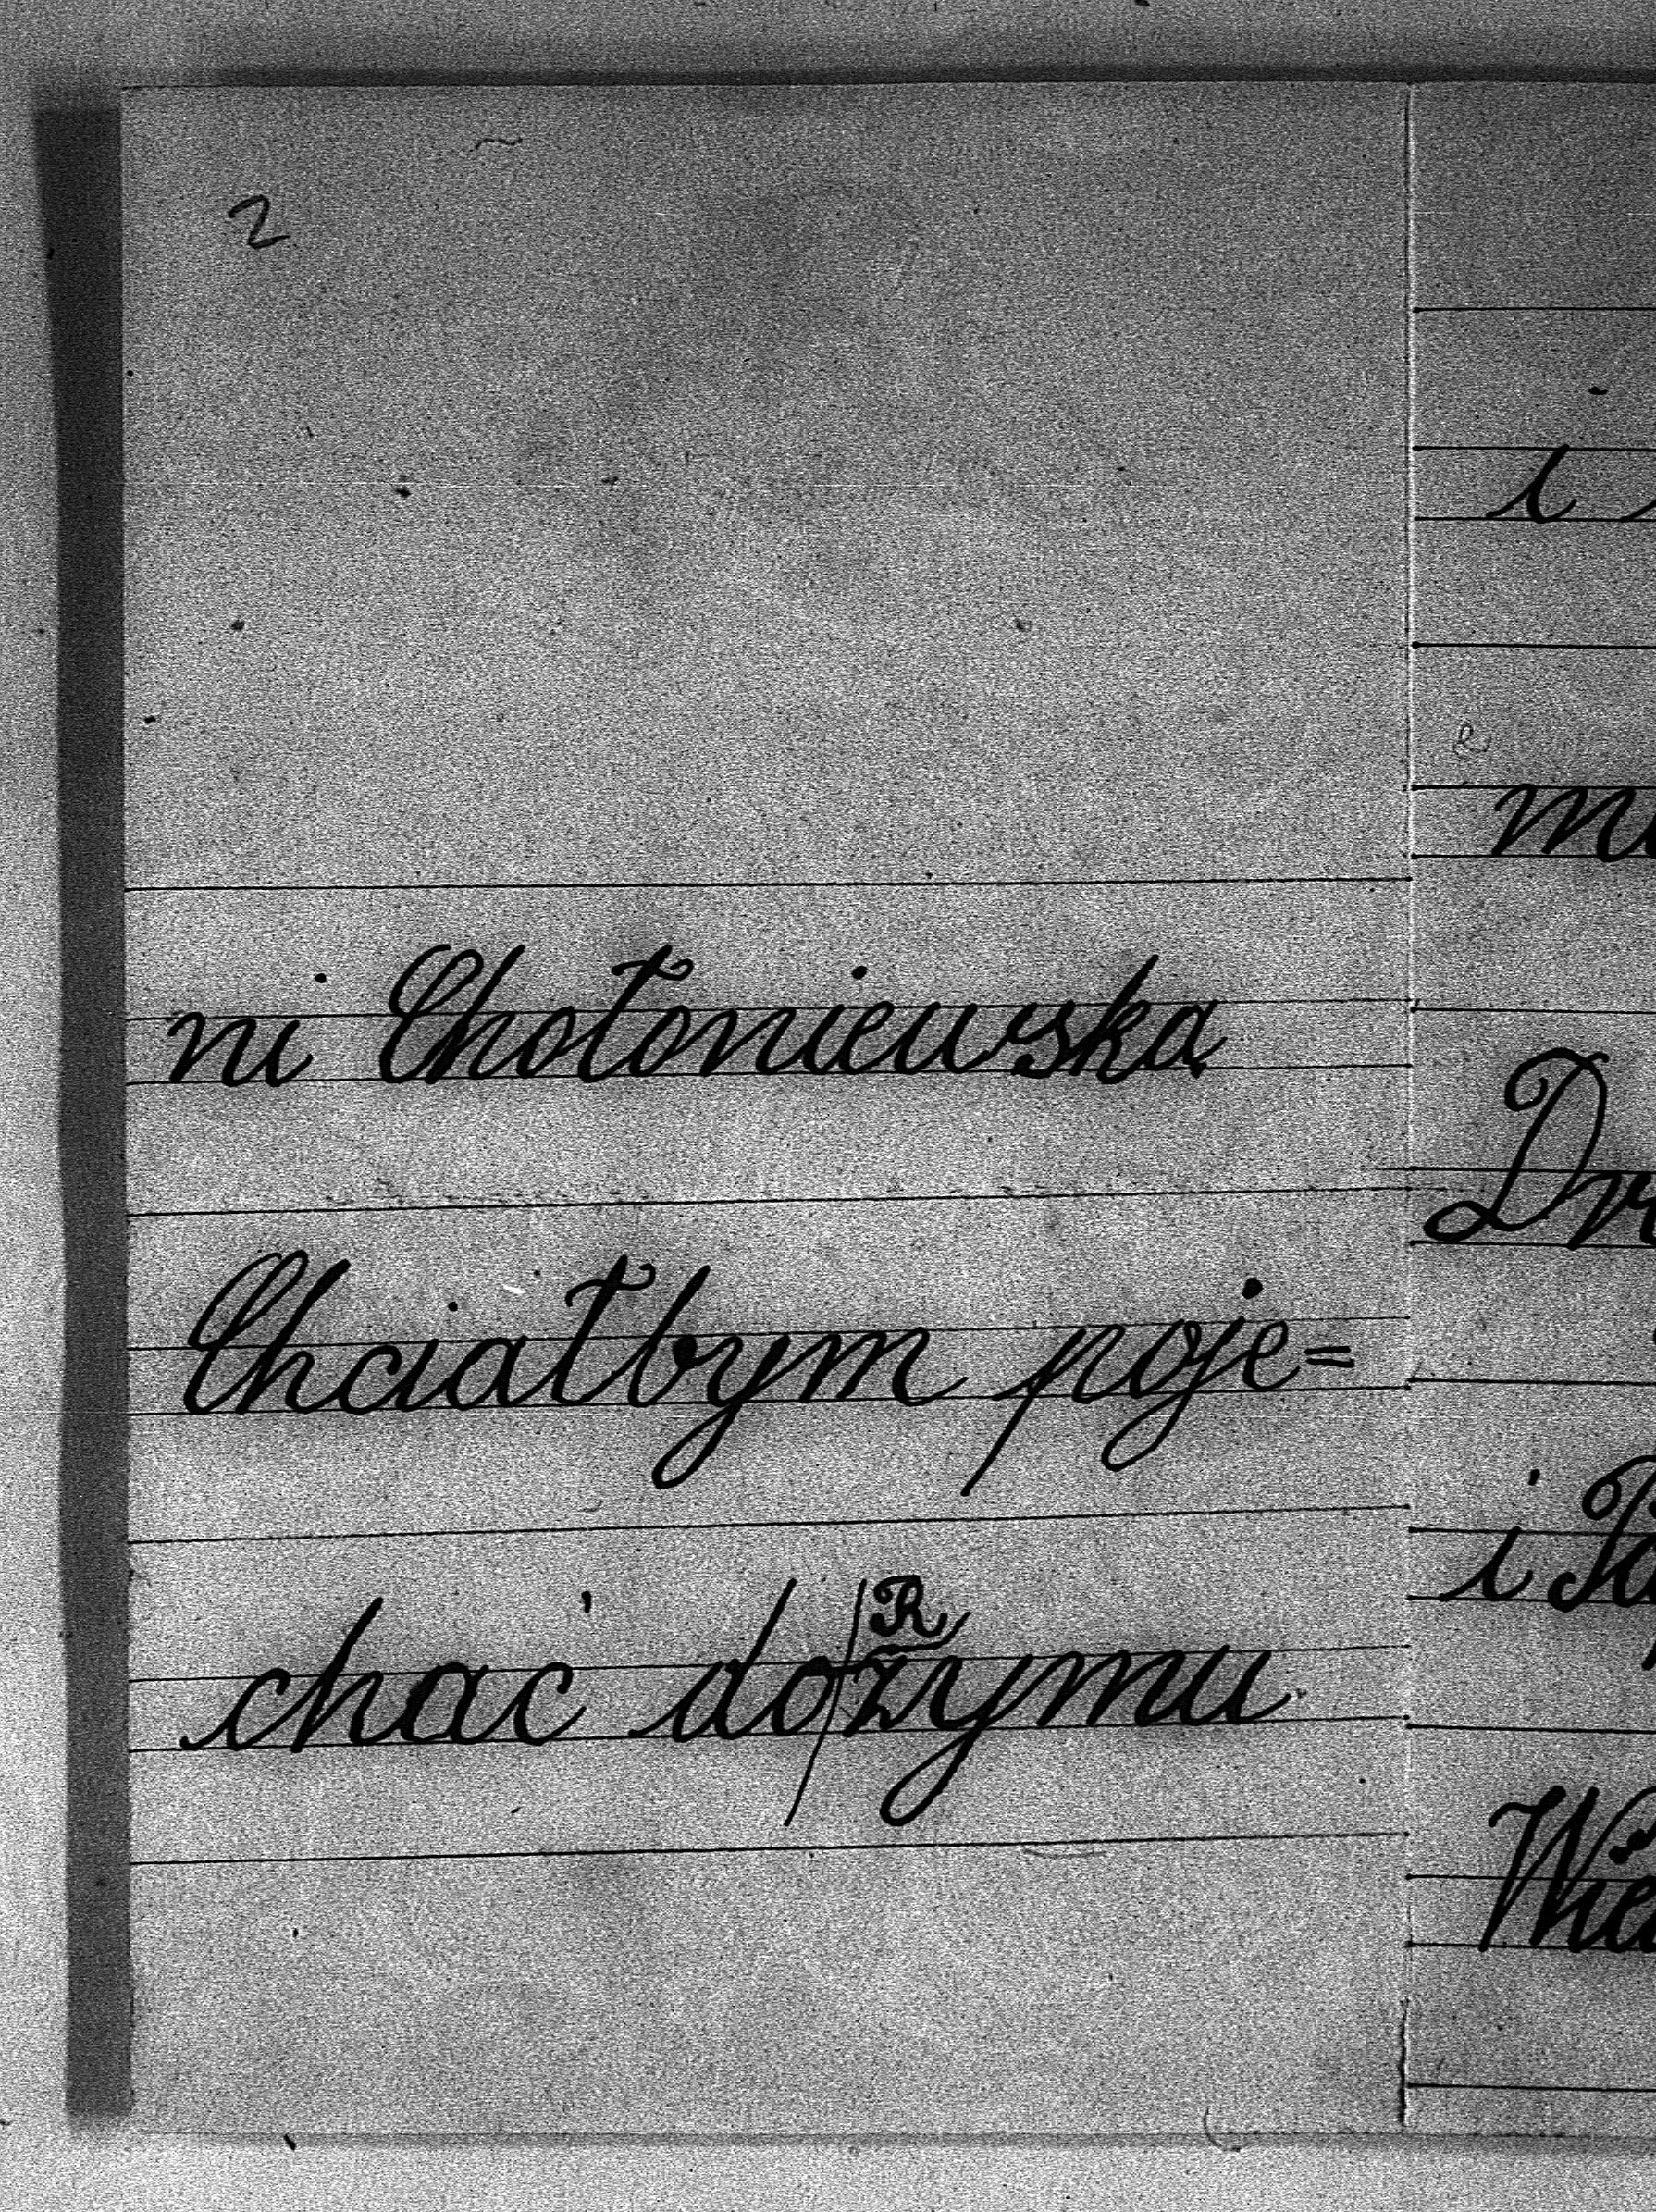 2
ni Chołoniewska
Chciałbym poje=
chać do|żymu
R
i
2
Dr
i Pa
Wie